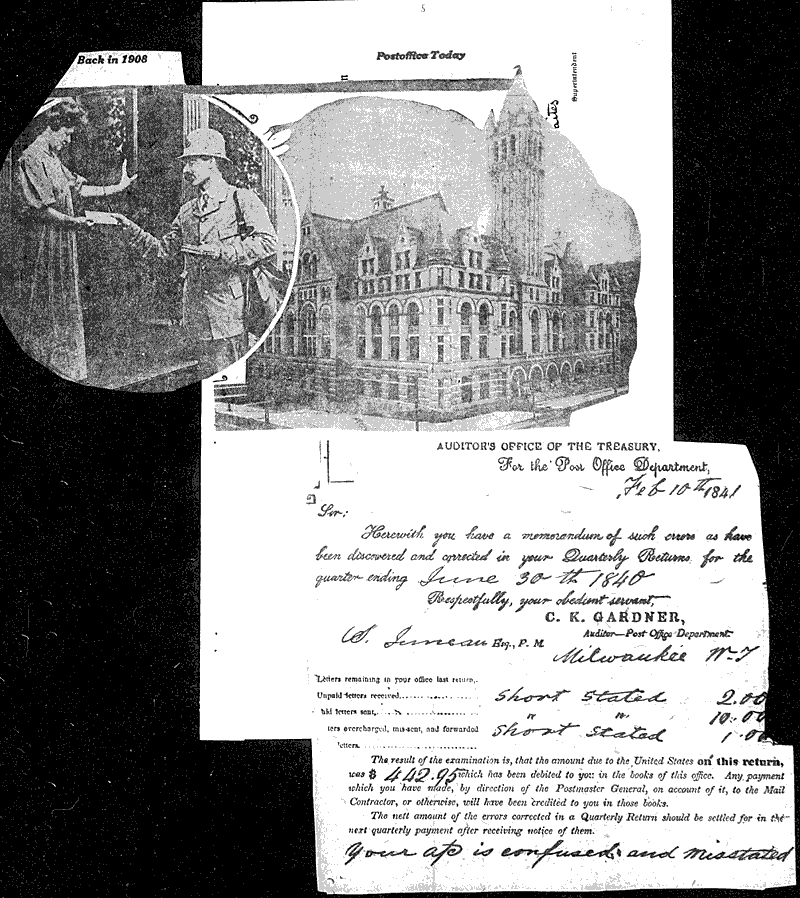 5
Back in 1908
Postoffice Today
Superintendent
AUDITOR'S OFFICE OF THE TREASURY,
For the Post Office Department,
Feb 10th 1841
Sir:
Herewith you have a memorandum of such errors as have
been discovered and corrected in your Quarterly Returns for the
quarter ending June 30th 1840
Respectfully, your obedient servant,
C. K. GARDNER,
Auditor—Post Office Department.
S. Juneau Esq., P. M.
Milwaukee W.T
Letters remaining in your office last return,
Unpaid letters received, Short Stated 2.00
aid letters sent, " " 10.00
ters overcharged, mis-sent, and forwarded Short Stated 1.00
letters.
The result of the examination is, that the amount due to the United States on this return,
was $ 442.95 which has been debited to you in the books of this office. Any payment
which you have made, by direction of the Postmaster General, on account of it, to the Mail
Contractor, or otherwise, will have been credited to you in those books.
The nett amount of the errors corrected in a Quarterly Return should be settled for in the
next quarterly payment after receiving notice of them.
Your a/c is confused and misstated